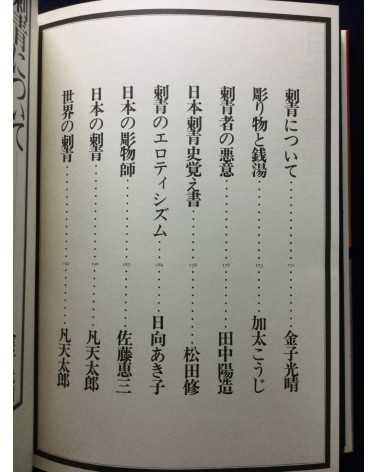 刺青について
刺青について…………金子光晴
彫り物と銭湯…………加太こうじ
刺青者の悪意…………田中陽造
日本刺青史覚え書…………松田修
刺青のエロティシズム…………日向あき子
日本の彫物師…………佐藤恵三
日本の刺青…………凡天太郎
世界の刺青…………凡天太郎